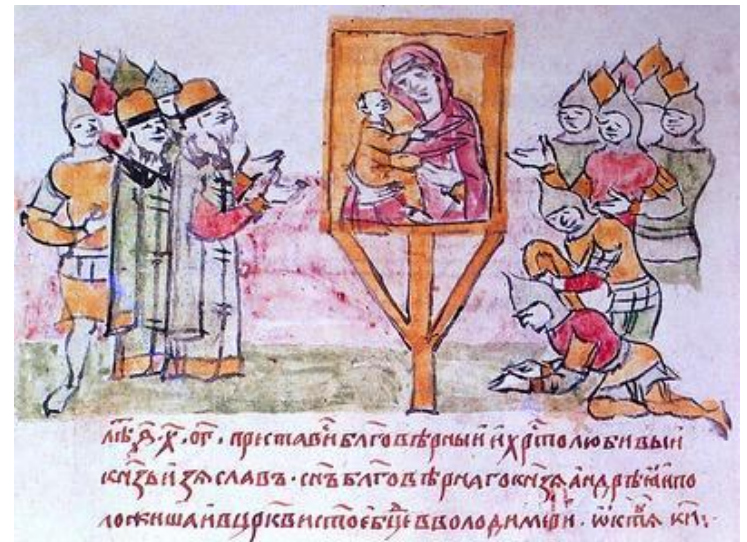 лѣ҃ ҂ѕ҃ · х҃ · ог҃ · приставⷭ҇и блг҃овѣрныи и хрⷭ҇толюбивыи
кн҃зь изѧславъ · сн҃ъ блг҃овѣрнаго кн҃зѧ андрѣꙗ и по
ложиша и в црк҃ви ст҃ое бц҃е в володимери ·